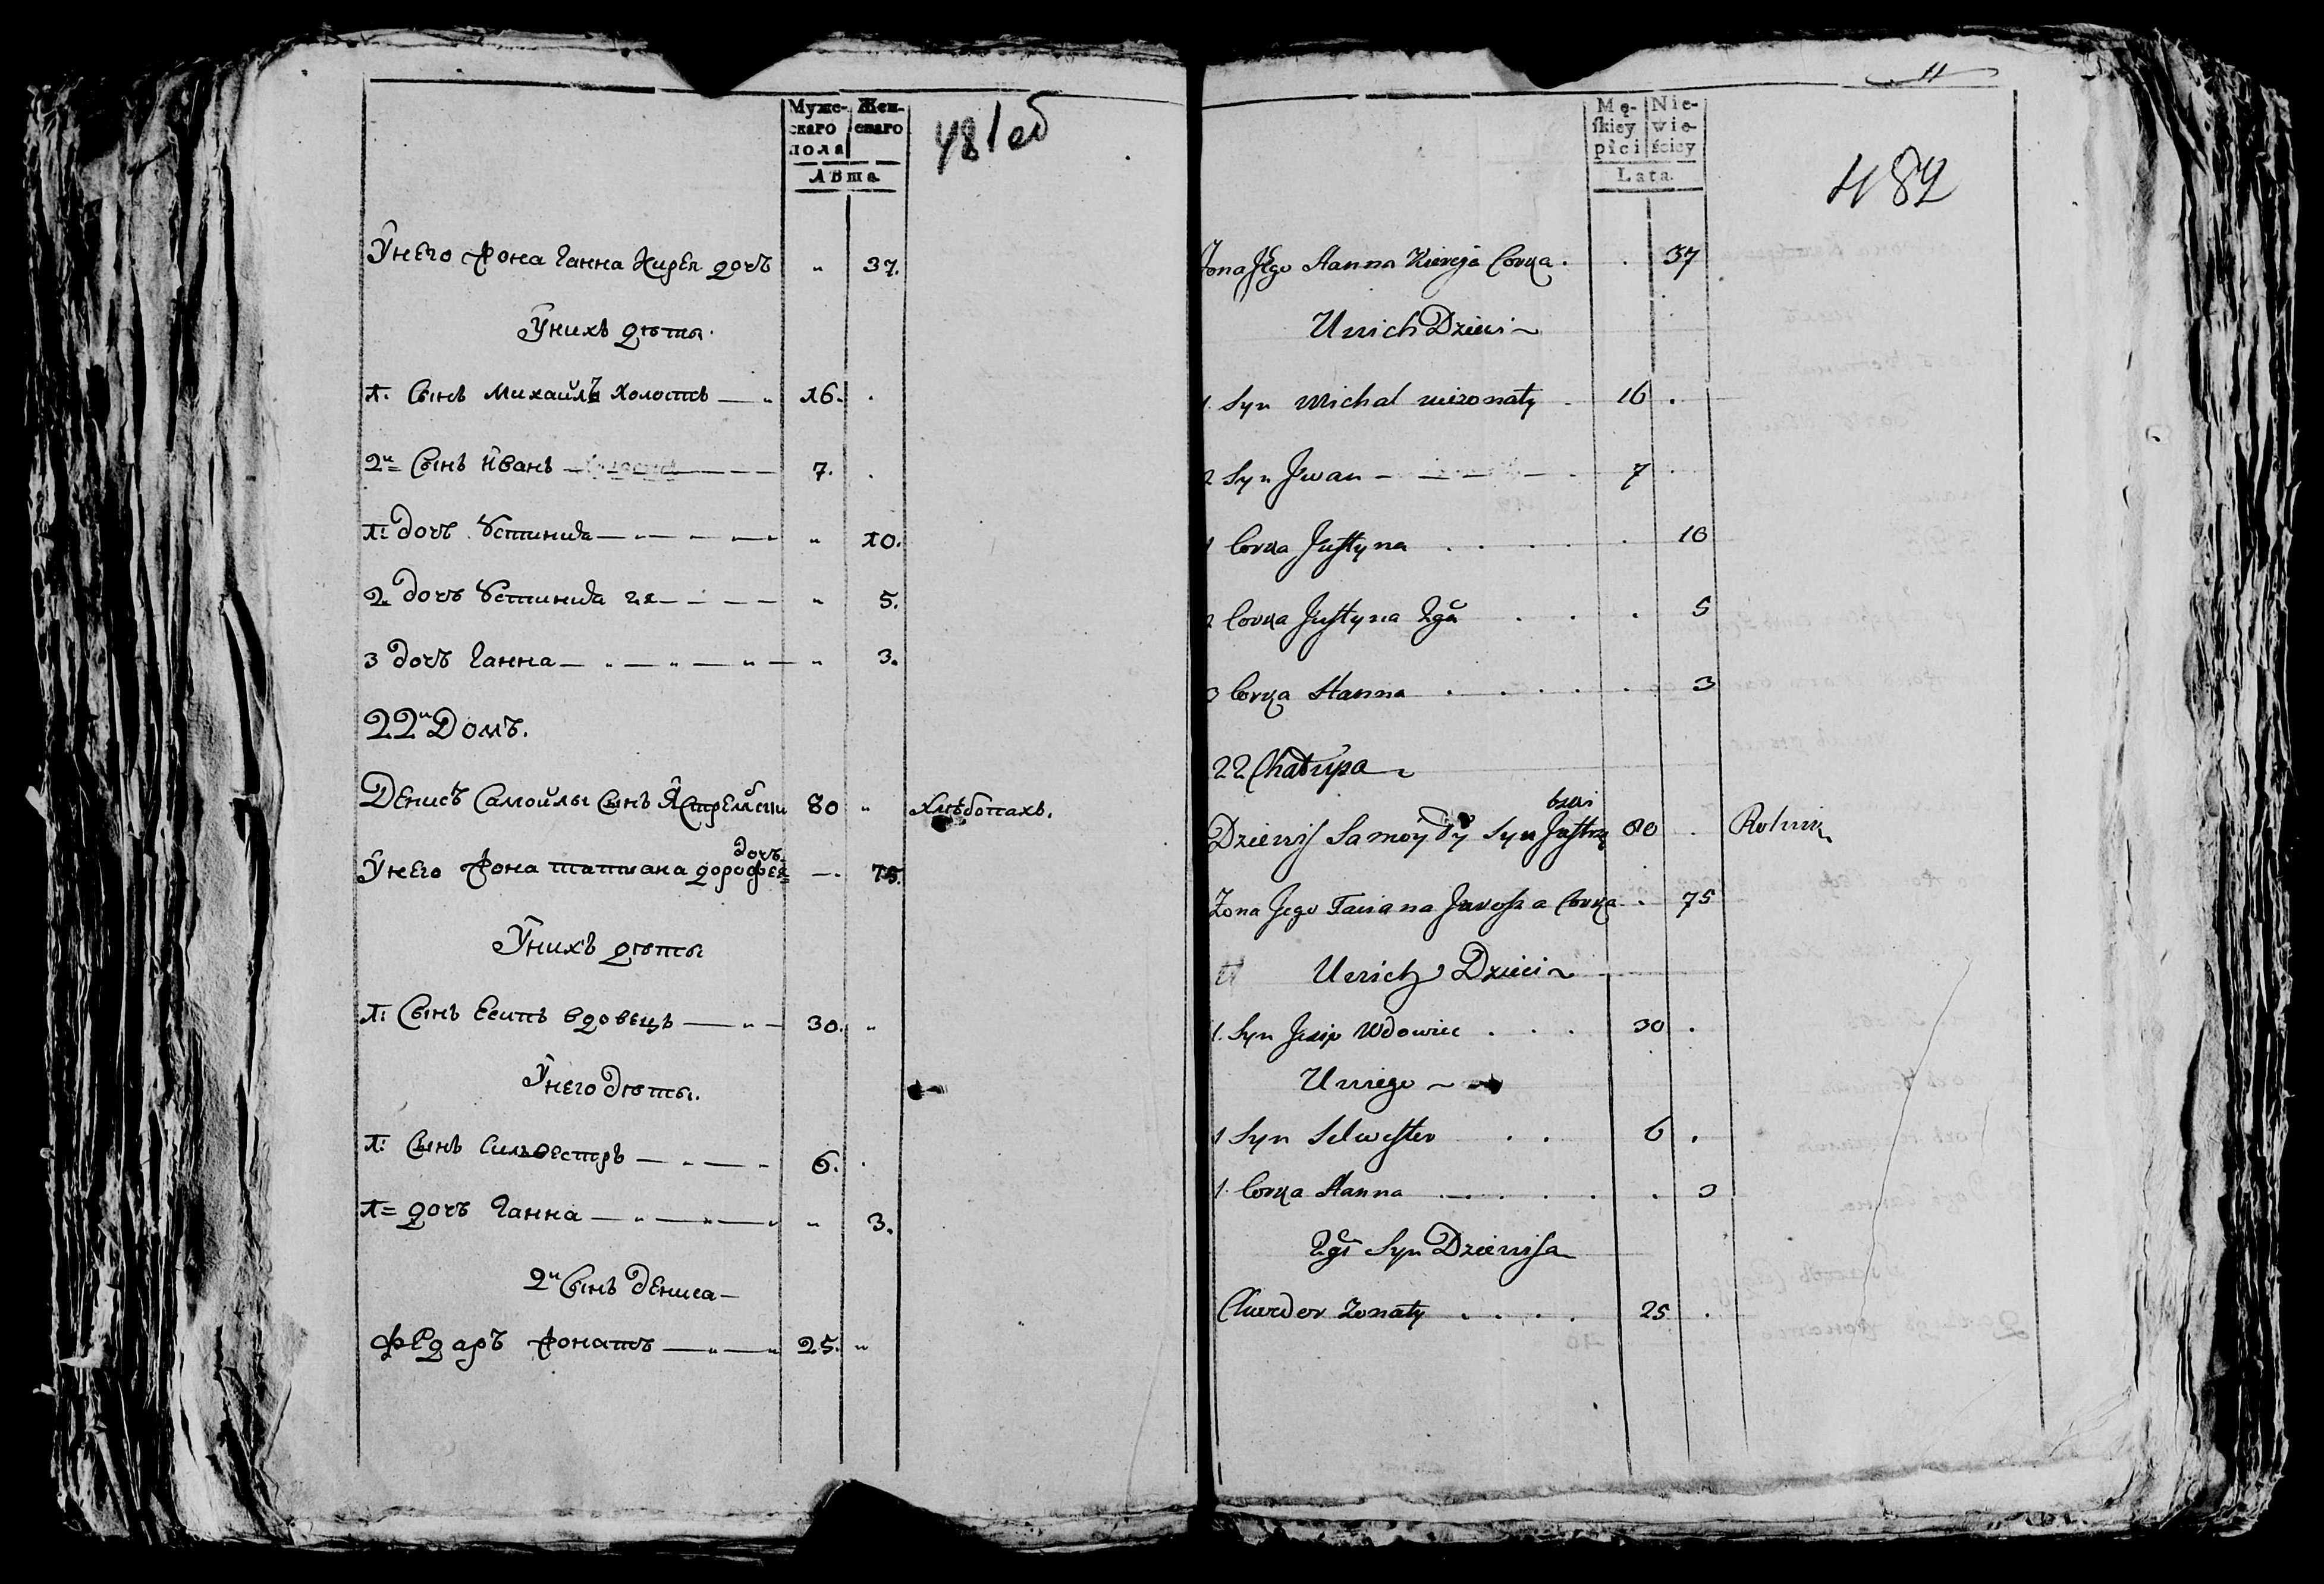 Муже-
скаго
пола
Жен-
скаго
Лѣта
481 об
Унего жона Ганна Кирея дочъ „ 37.
Унихъ дѣты.
1. Сынъ Михайлъ Холостъ — „ 16. .
2й Сынъ Иванъ — 7. .
1: дочъ Устиниа — „ — „ 10.
2 дочъ Устиниа 2я — „ 5.
3 дочъ Ганна — „ — „ — „ — „ 3.
22й Домъ.
Денисъ Самойлы Сынъ 80 „ Хлѣбопахъ.
дочъ
Унего жона татиана дорофея — 75.
Унихъ дѣты
1: Сынъ Есипъ вдовецъ — „ — 30. „
Унего дѣты.
1: Сынъ Сильвестръ — „ — „ 6. .
1= дочъ Ганна — „ — „ — „ „ 3.
2й Сынъ дениса —
Федаръ жонатъ — „ — „ 25. „
11
Mę-
skiey
płci
Nie-
wie-
ściey
Lata.
482
Żona Jego Hanna Kireja Corka . . 37
Unich Dzieci ~
1. Syn Michał nieżonaty . 16 .
2 Syn Jwan — — — . 7 .
1 Corka Justyna . . . . . 10
2 Corka Justyna 2ga . . . 5
3 Corka Hanna . . . . . 3
22 Chałupa ~
bski
Dzienis Samoyły Syn Jastrzę 80 . Rolnik
Żona Jego Taciana Corka . 75
Unich Dzieci ~
1. Syn Jesip Wdowiec . . . 30 .
Uniego ~
1 Syn Selwester . . 6 .
1. Corka Hanna . . . . . . 3
2gi Syn Dzienisa
Chwedor Żonaty . . . . 25 .